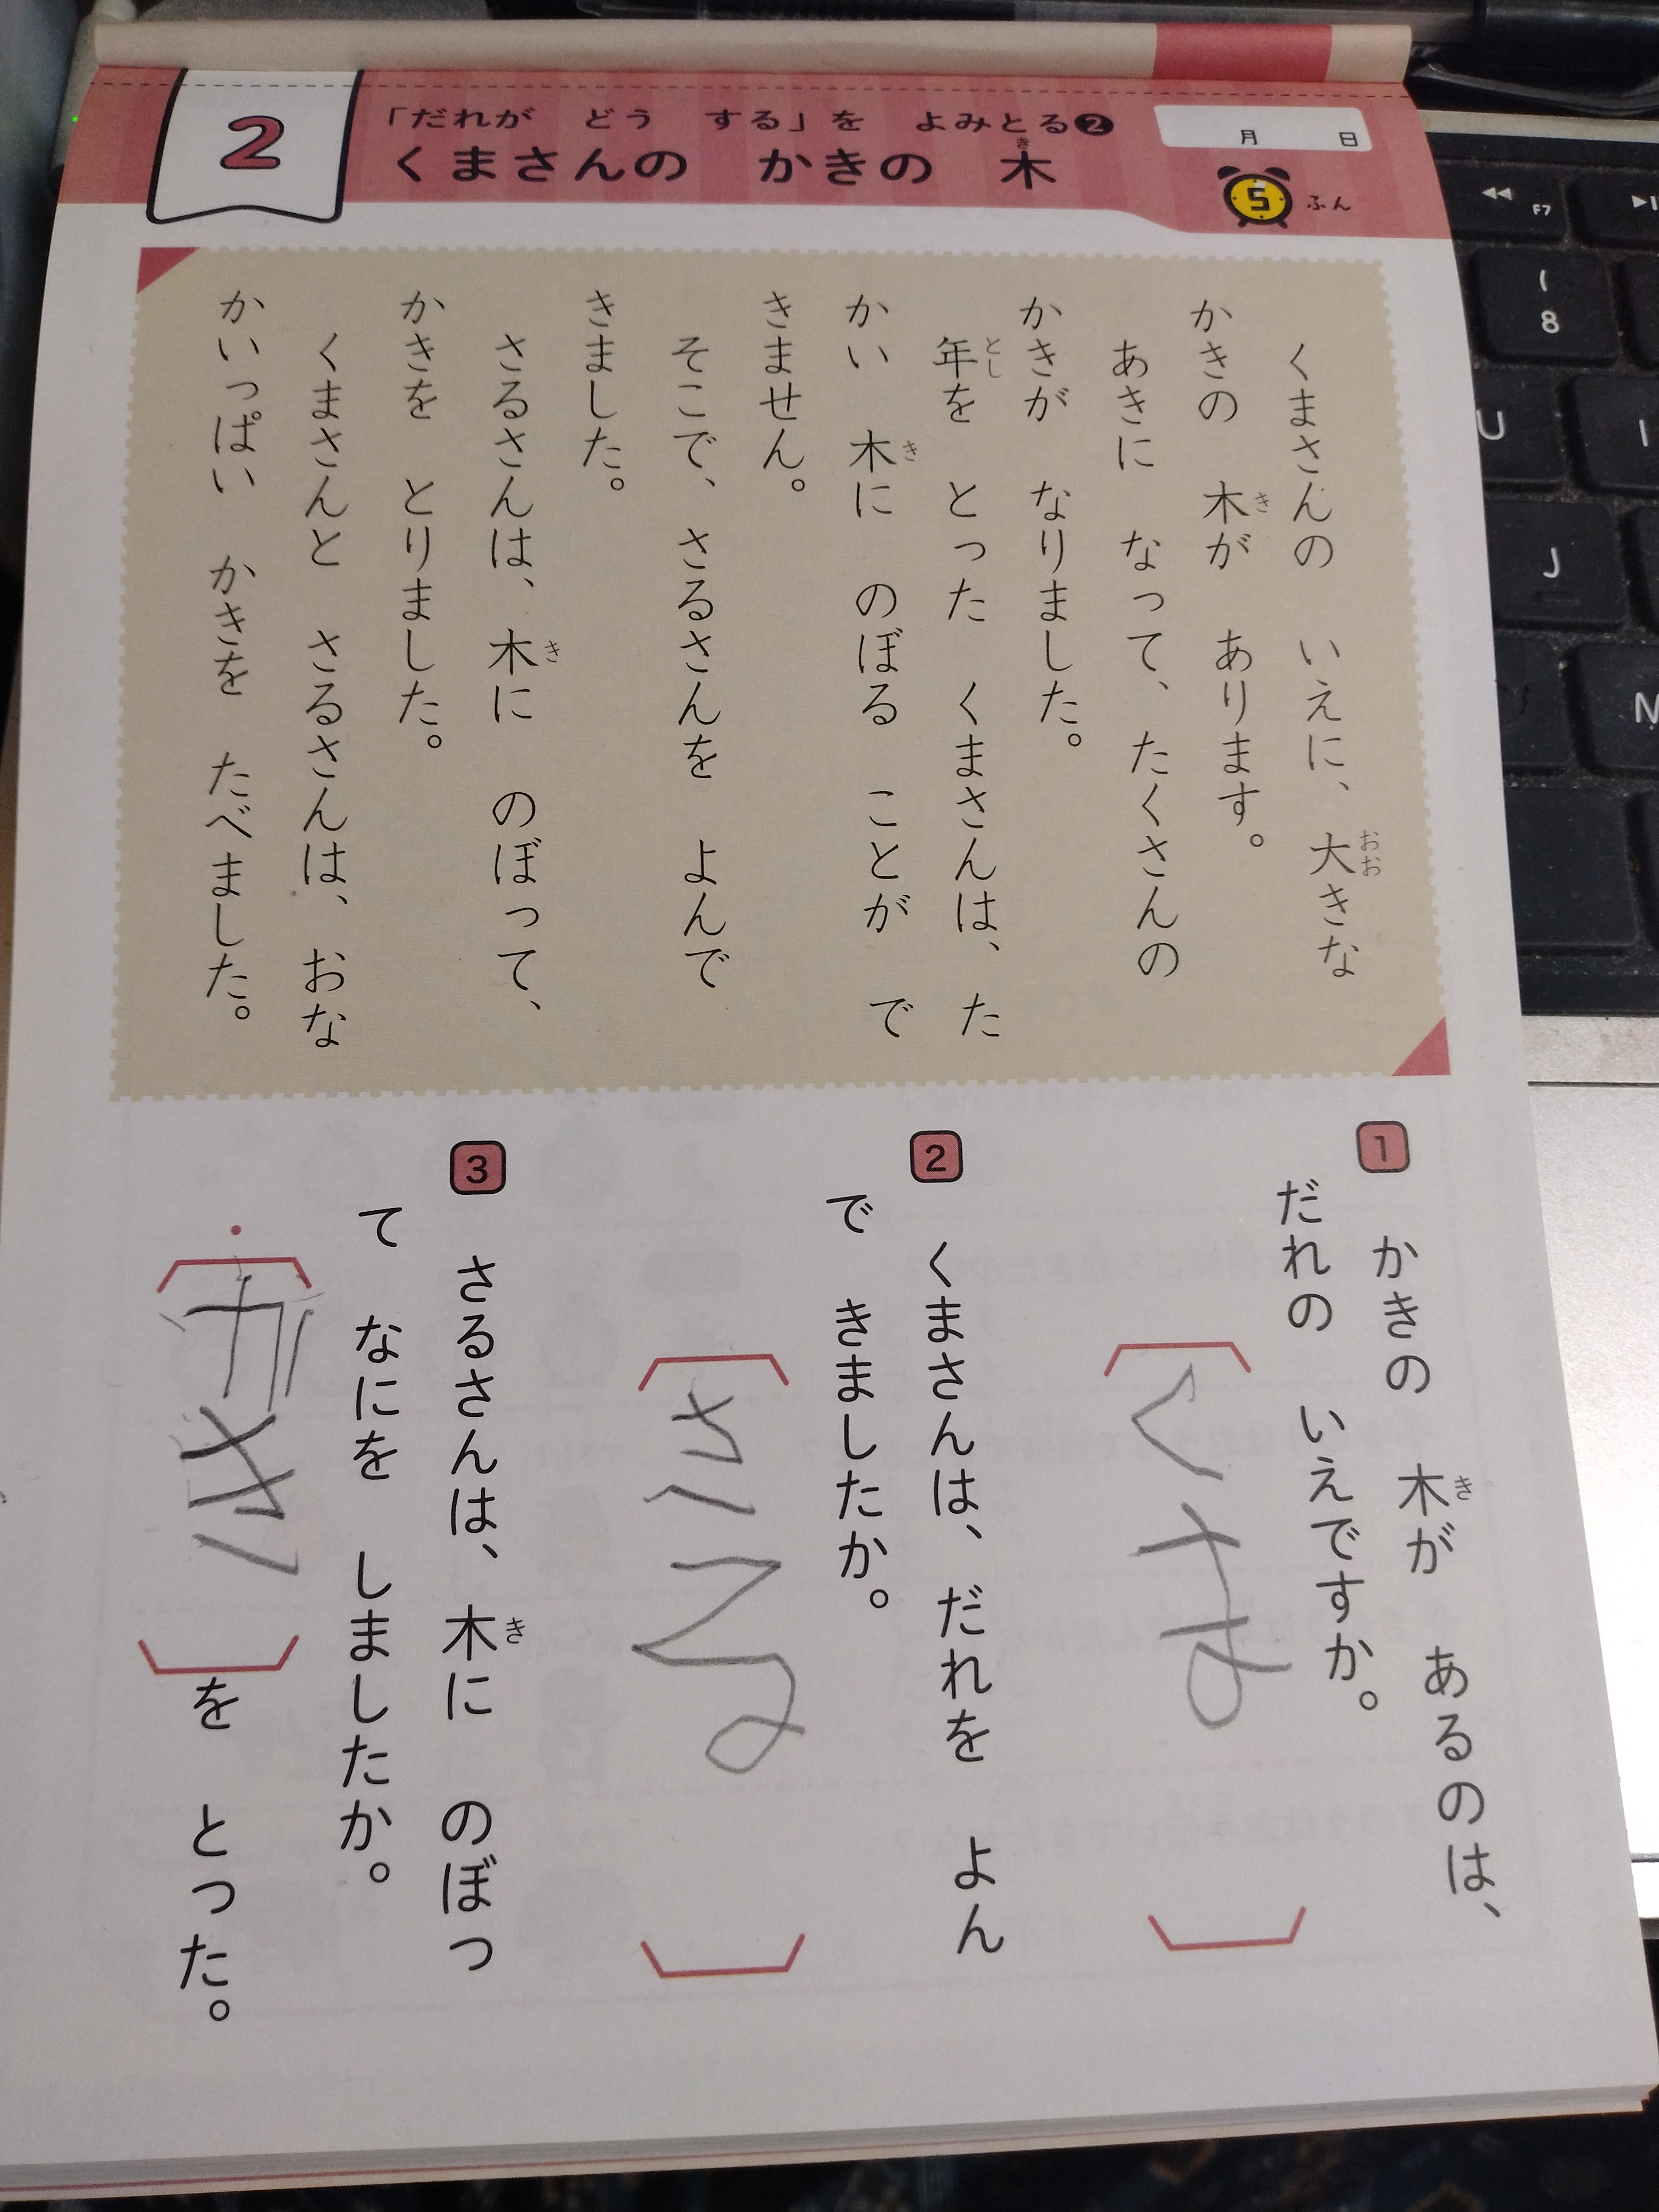 2
「だれが どう する」を よみとる❷
くまさんの かきの 木
き
月 日
5 ふん
くまさんの いえに、大きな
おお
かきの 木が あります。
き
あきに なって、たくさんの
かきが なりました。
年を とった くまさんは、た
とし
かい 木に のぼる ことが で
き
きません。
そこで、さるさんを よんで
きました。
さるさんは、木に のぼって、
き
かきを とりました。
くまさんと さるさんは、おな
かいっぱい かきを たべました。
1
かきの 木が あるのは、
き
だれの いえですか。
くま
2
くまさんは、だれを よん
で きましたか。
さる
3
さるさんは、木に のぼっ
き
て なにを しましたか。
・
かき
を とった。
F7
(
8
U
I
J
M